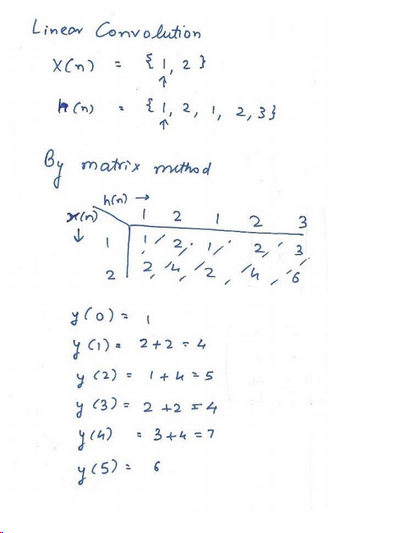 Linear Convolution
x(n) = { 1, 2 }
↑
h(n) = { 1, 2, 1, 2, 3 }
↑
By matrix method
h(n) →
x(n) 1 2 1 2 3
↓ 1 1 2 1 2 3
2 2 4 2 4 6
y(0) = 1
y(1) = 2+2 = 4
y(2) = 1+4 = 5
y(3) = 2+2 = 4
y(4) = 3+4 = 7
y(5) = 6